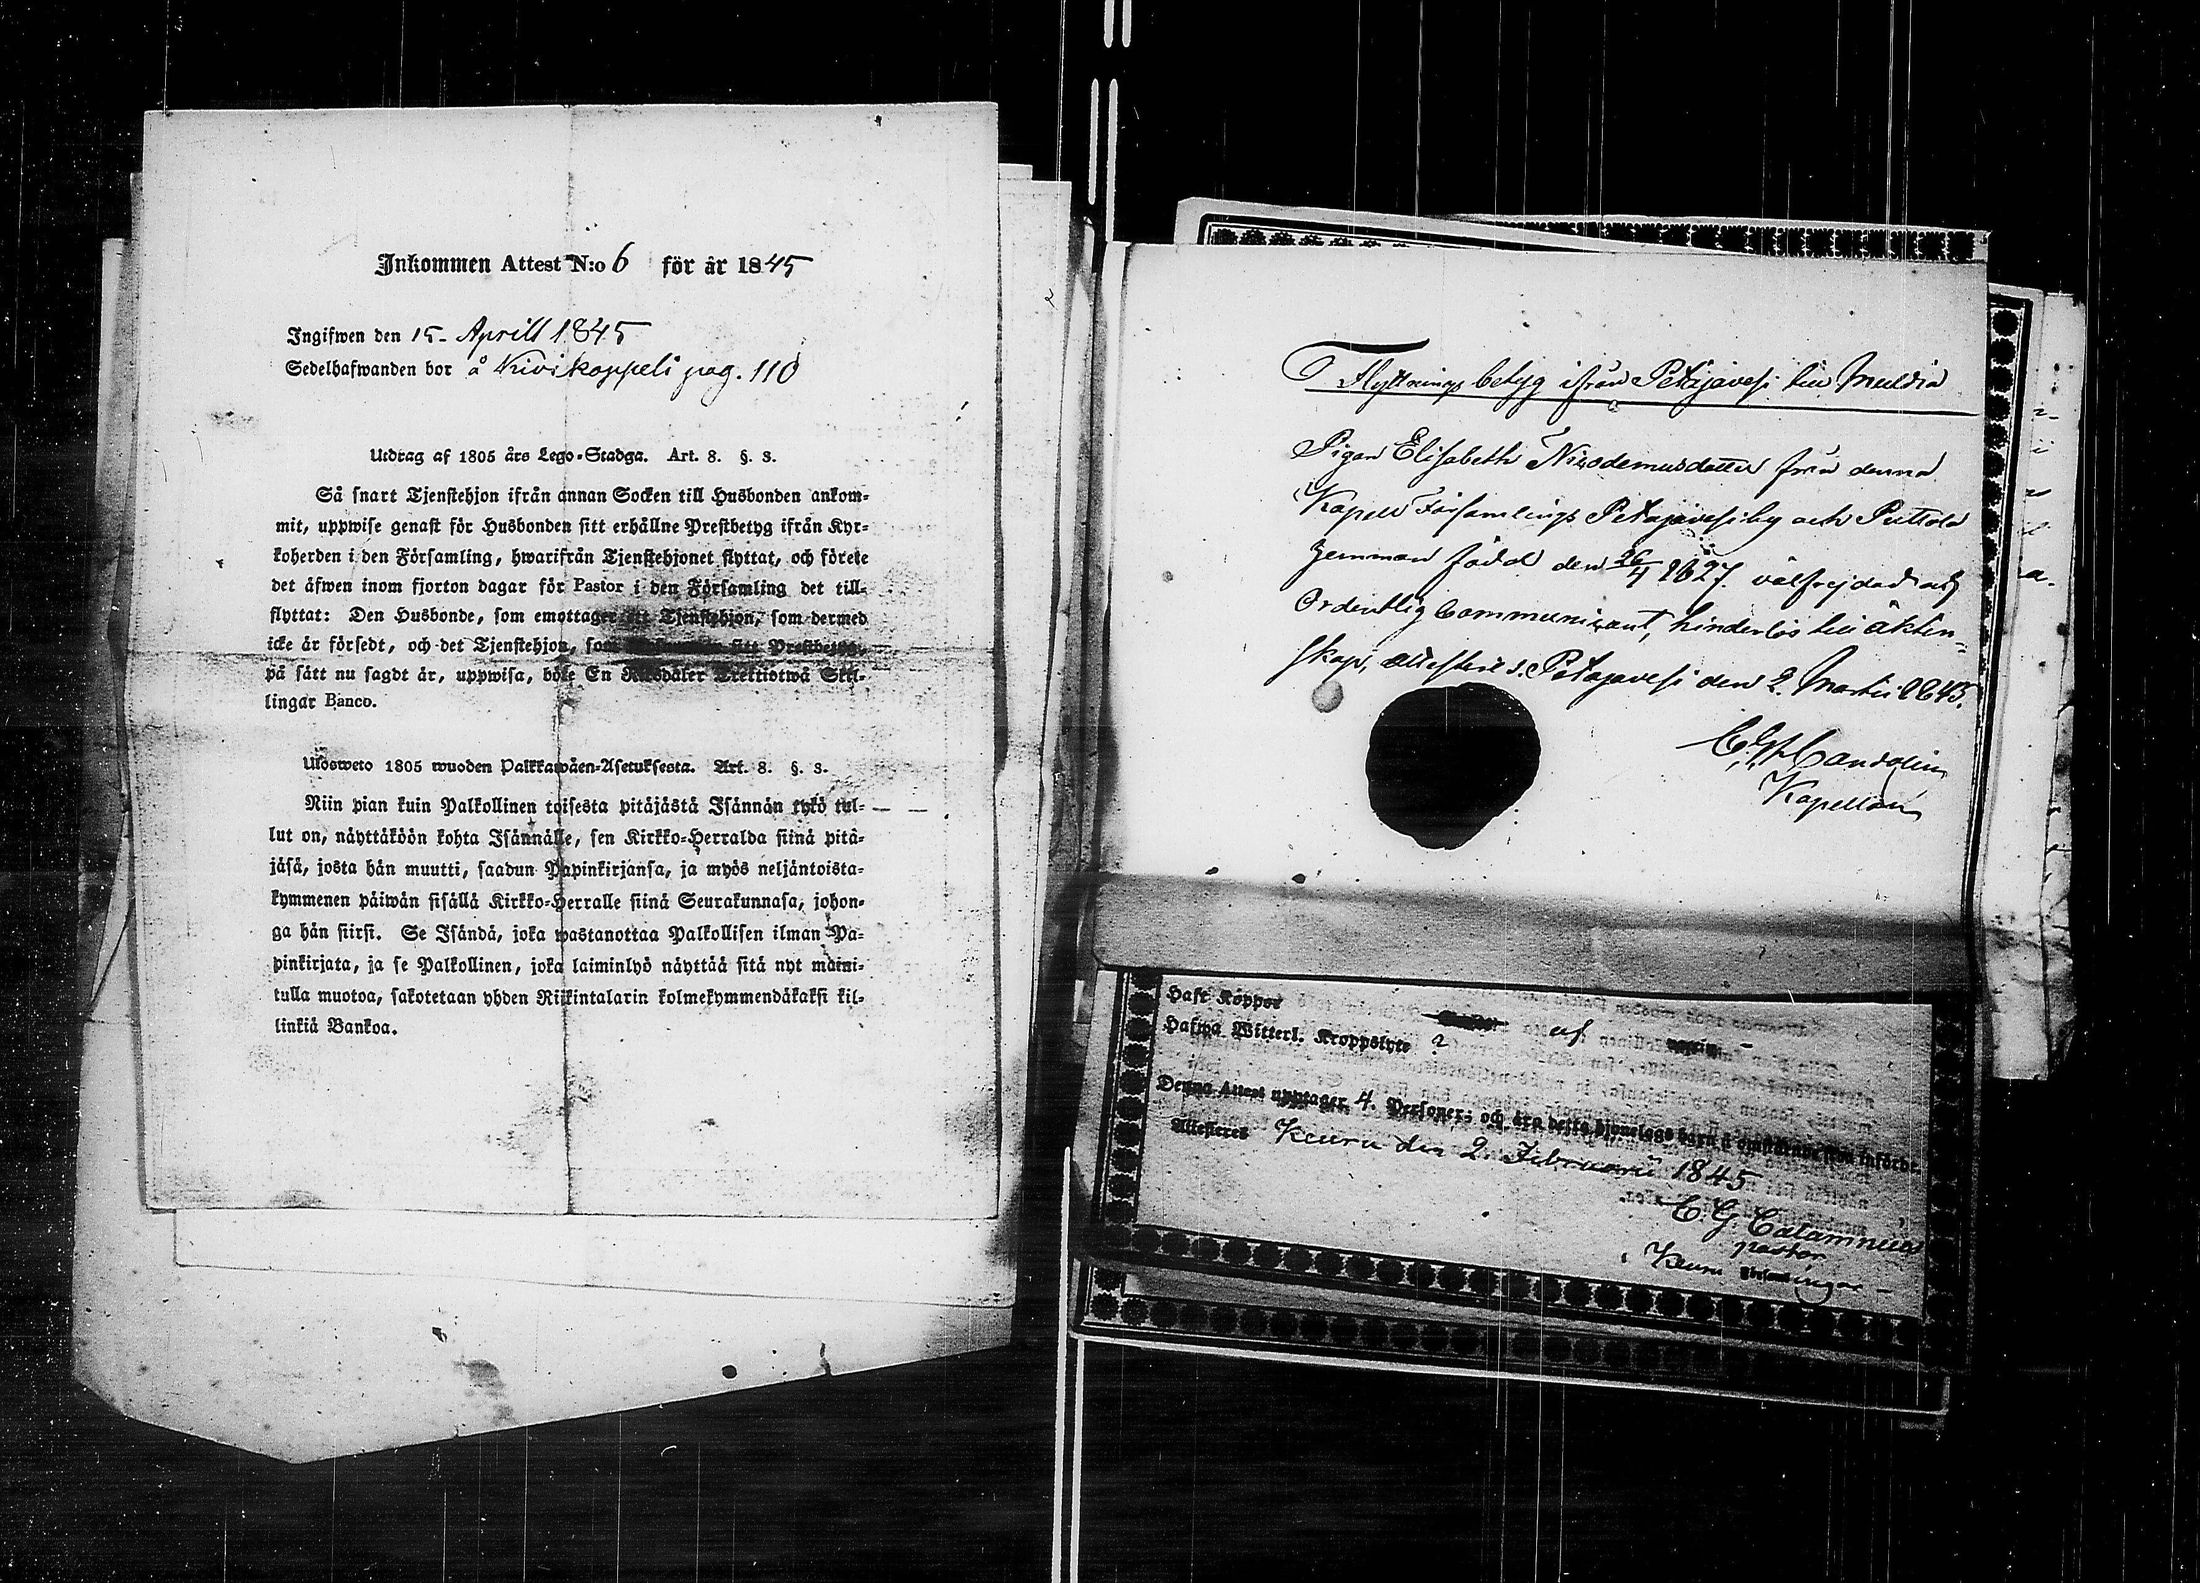 Inkommen Attest N:o 6 för år 1845
Ingifwen den 15. Aprill 1845
Sedelhafwanden bor å Kivikoppeli pag. 110
Utdrag af 1805 års Lego-Stadga. Art. 8. §. 3.
Så snart Tjenstehjon ifrån annan Socken till Husbonden ankom-
mit, uppwise genast för Husbonden sitt erhållne Prestbetyg ifrån Kyr-
koherden i den Församling, hwarifrån Tjenstehjonet flyttat, och förete
det äfwen inom fjorton dagar för Pastor i den Församling det till-
flyttat: Den Husbonde, som emottager ett Tjenstehjon, som dermed
icke är försedt, och det Tjenstehjon, som sitt Prestbetyg,
på sätt nu sagdt är, uppwisa, böte En Riksdaler Trettiotwå Skil-
lingar Banco.
Ulosweto 1805 wuoden Palkkawäen-Asetuksesta. Art. 8. §. 3.
Niin pian kuin Palkollinen toisesta pitäjästä Isännän tykö tul-
lut on, näyttäköön kohta Isännälle, sen Kirkko-Herralda siinä pitä-
jäsä, josta hän muutti, saadun Papinkirjansa, ja myös neljäntoista-
kymmenen päiwän sisällä Kirkko-Herralle siinä Seurakunnasa, johon-
ga hän siirsi. Se Isändä, joka wastanottaa Palkollisen ilman Pa-
pinkirjata, ja se Palkollinen, joka laiminlyö näyttää sitä nyt maini-
tulla muotoa, sakotetaan yhden Riikintalarin kolmekymmendäkaksi kil-
linkiä Bankoa.
Flyttnings betyg ifrån Petäjävesi till Multia
Pigan Elisabeth Nicodemusdotter från denna
Kapell Församlings Petäjävesi by och Puttola
hemman född den 26/4 1827. välfrejdad och
Ordentlig Communicant, hinderlös till äkten-
skap, attesteras. Petäjävesi den 2. Martii 1845.
Candolin
Kapellan
Haft Koppor
Hafwa Witterl. Kroppslyte ? af
Denna Attest upptager 4. Personer; och äro detta hjonelags barn å omstående sida införde
Attesteres Keuru den 2. Februarii 1845
C. G. Calamnius
pastor
i Keuru församlingar